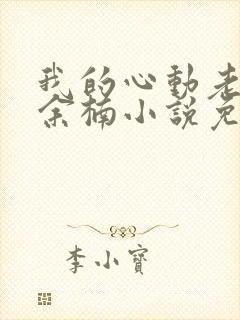 我的心動老
余楠小說免
李小寶